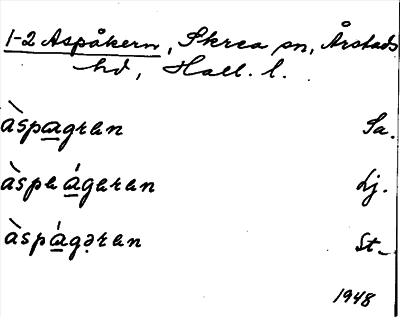 1-2 Aspåkern, Skrea sn, Årstads
hd, Hall. l.
àspagrɐn Sa.
àspɐágɐrɐn Lj.
àspágə̣rɐn St.
1948